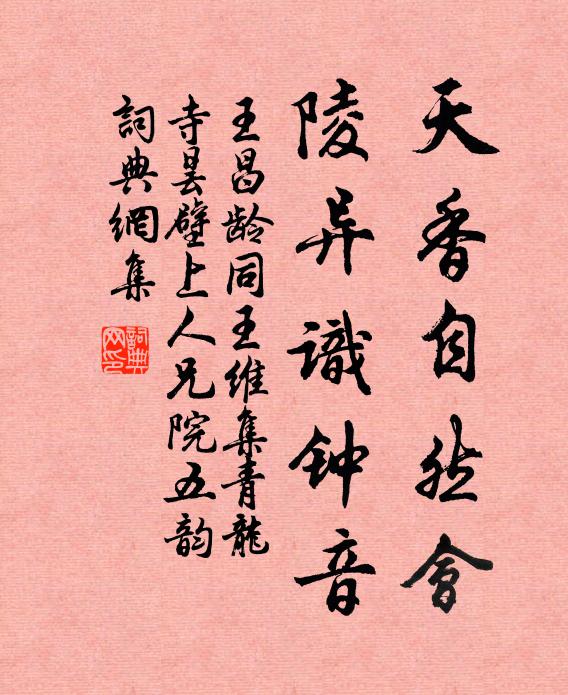 天香自然會
陵异識钟音
王昌龄同王维集青龍
寺曇壁上人兄院五韵
詞典網集
詞典
网印